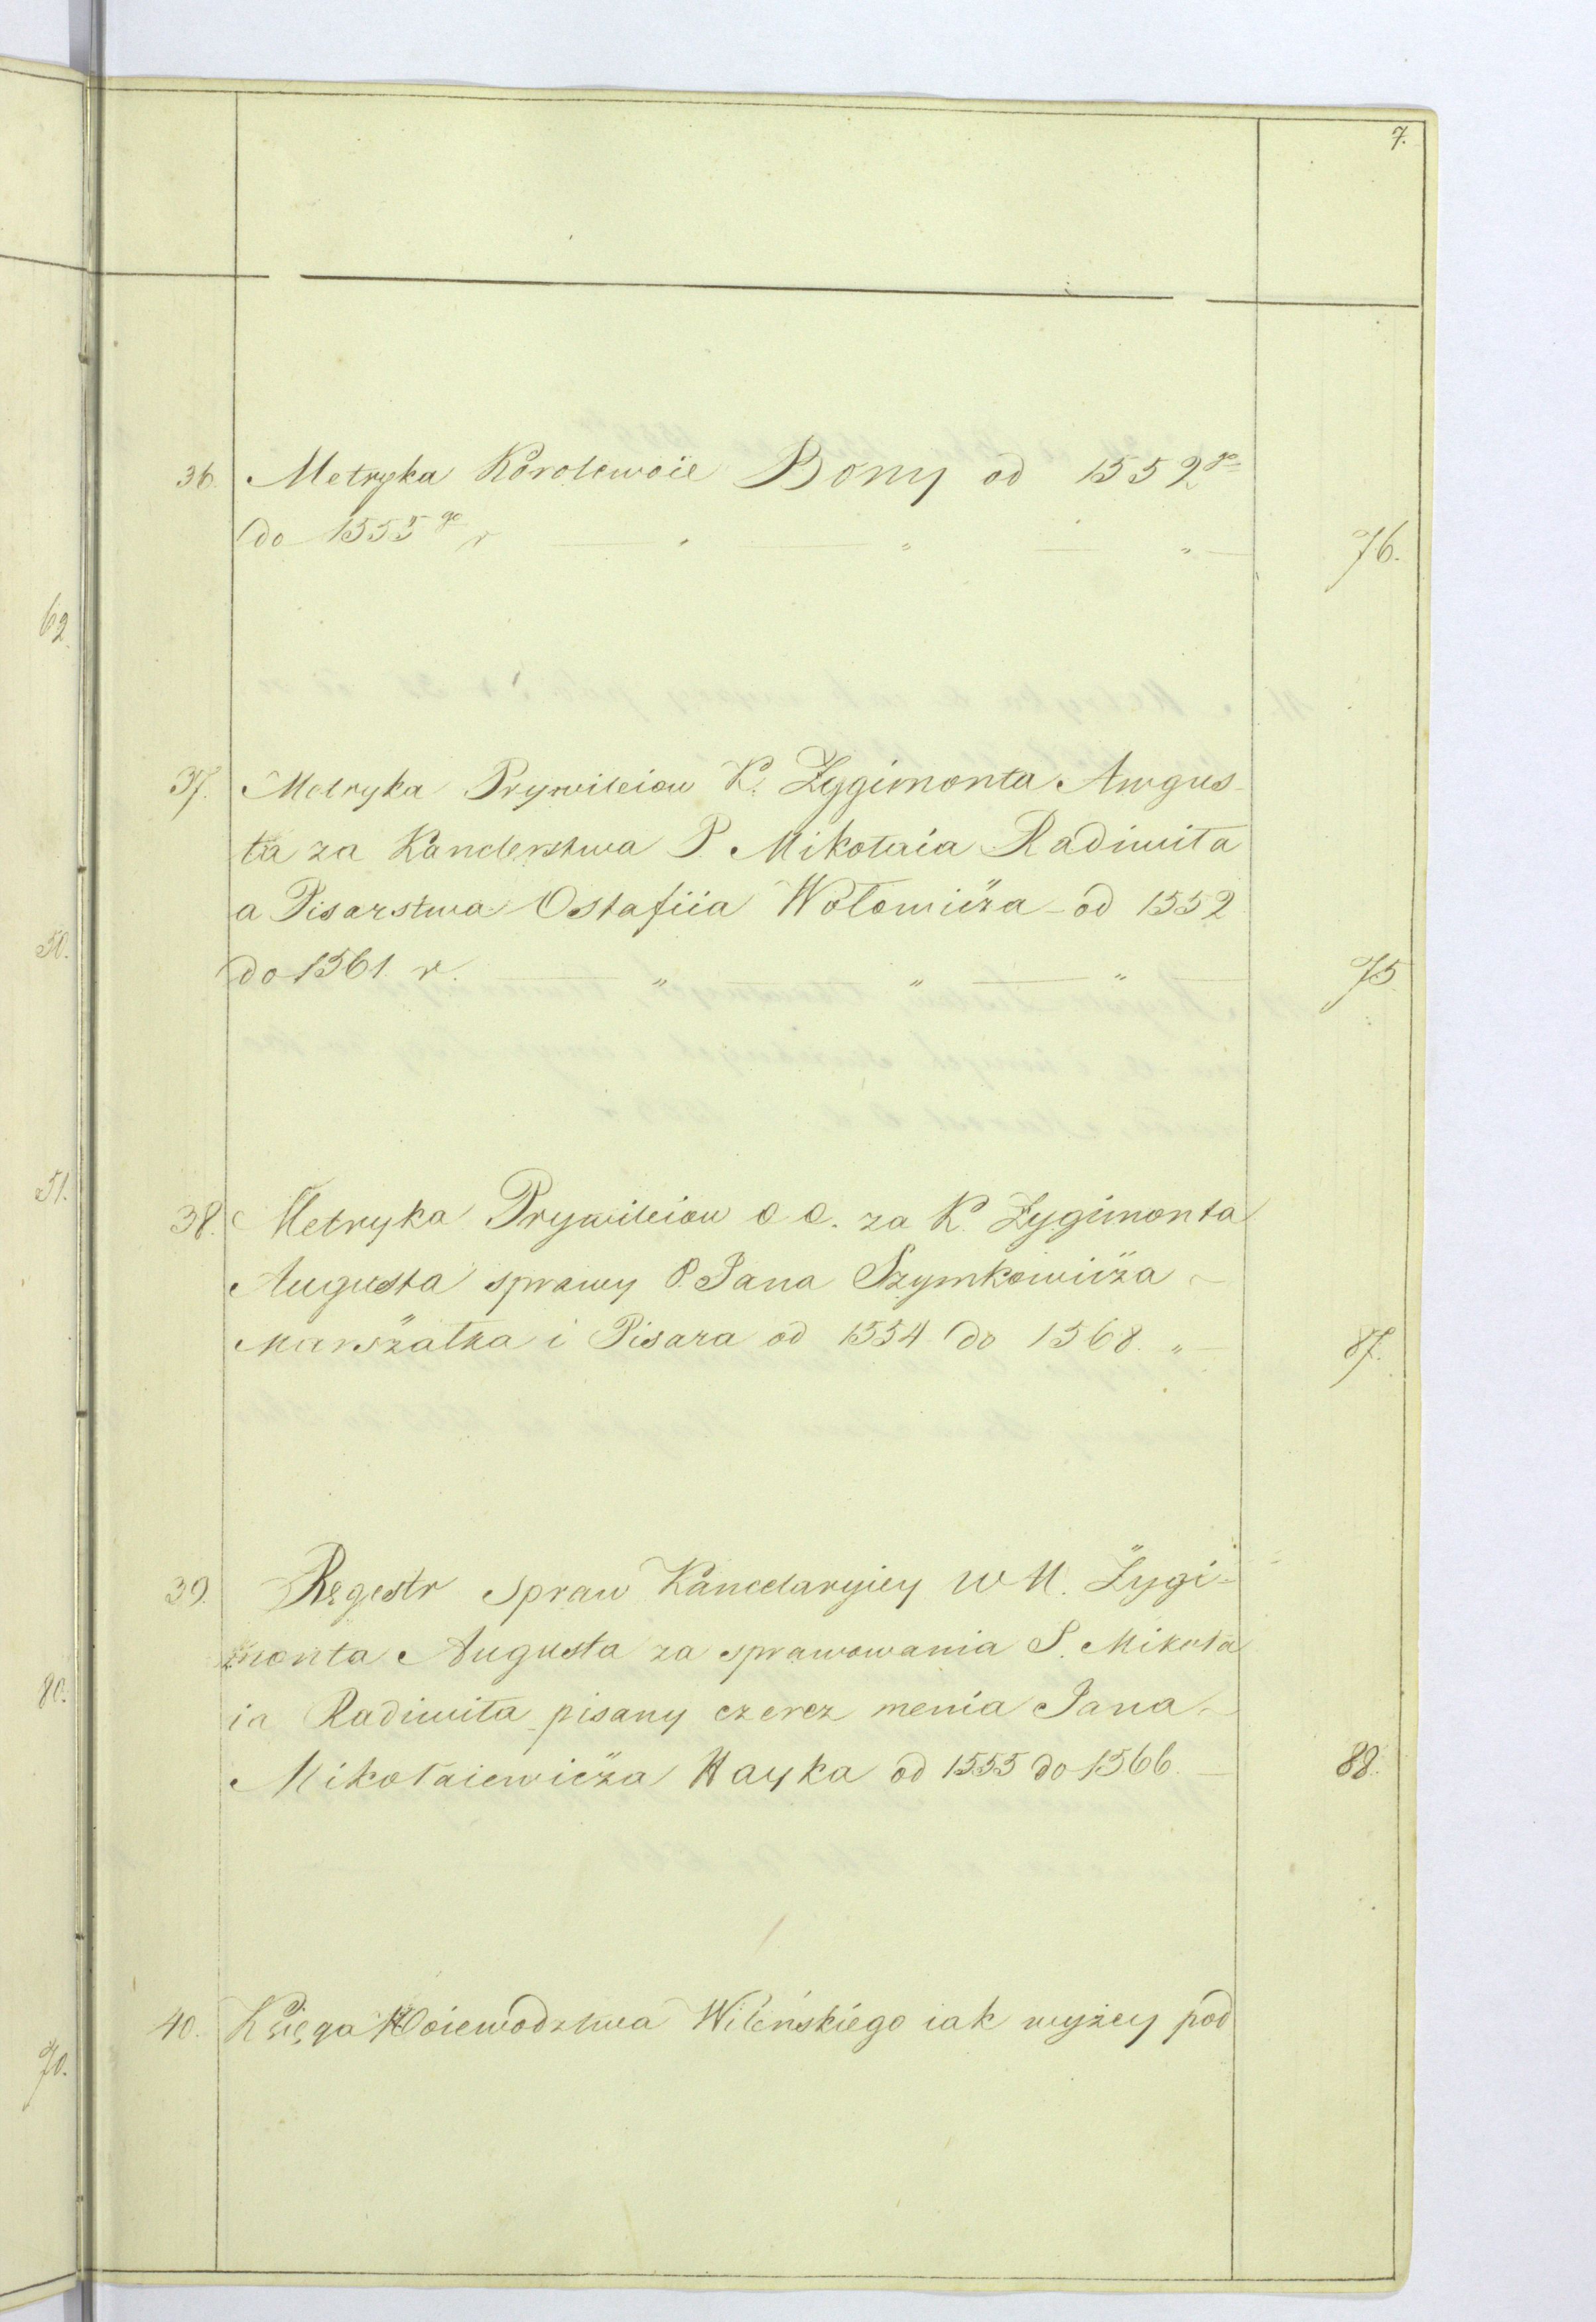 7.
36. Metryka Korolewoie Bony od 1552go
do 1555go r — " — " — " — 76.
37. Metryka Prywileiow K. Zygimonta Awgus-
ta za Kanclerstwa P. Mikołaia Radiwiła
a Pisarstwa Ostafiia Wołowicża - od 1552
do 1561. r. — " — " — " — 75
38. Metryka Prywileiow o o. za K. Zygimonta
Augusta sprawy P. Jana Szymkowicża
Marszałka i Pisara od 1554 do 1568. " — 87.
39. Regestr Spraw Kancelaryiey W K. Żygi-
monta Augusta za sprawowania P. Mikoła
ia Radiwiła pisany czerez menia Jana
Mikołaiewicża Hayka od 1555 do 1566. — 88.
40. Księga Woiewodztwa Wileńskiego iak wyżey pod
62.
50.
51.
80.
70.